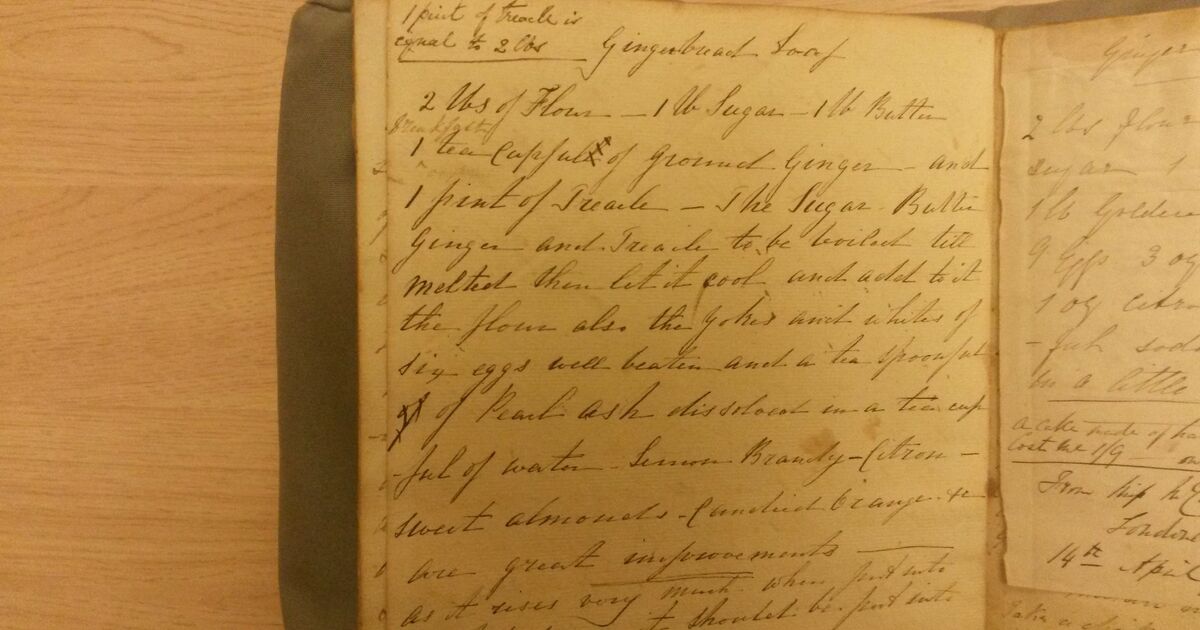 1 pint of treacle is
equal to 2 lbs
Gingerbread Loaf
2 lbs of Flour – 1 lb Sugar – 1 lb Butter
Breakfast
1 tea cupful of Ground Ginger – and
1 pint of Treacle – The Sugar Butter
Ginger and Treacle to be boiled till
melted then let it cool and add to it
the flour also the yokes and whites of
six eggs well beaten and a tea spoonful
of Pearl ash dissolved in a tea cup
-ful of water – Lemon Brandy – Citron –
sweet almonds – Candied Orange &c
are great improvements
as it rises very much when put into
it should be put into
Ginger
2 lbs flour
sugar 1
1 lb Golden
9 Eggs 3 oz
1 oz citro
-ful soda
in a little
a cake made of
cost me 1/9
From ship the
London
14th April
Take a